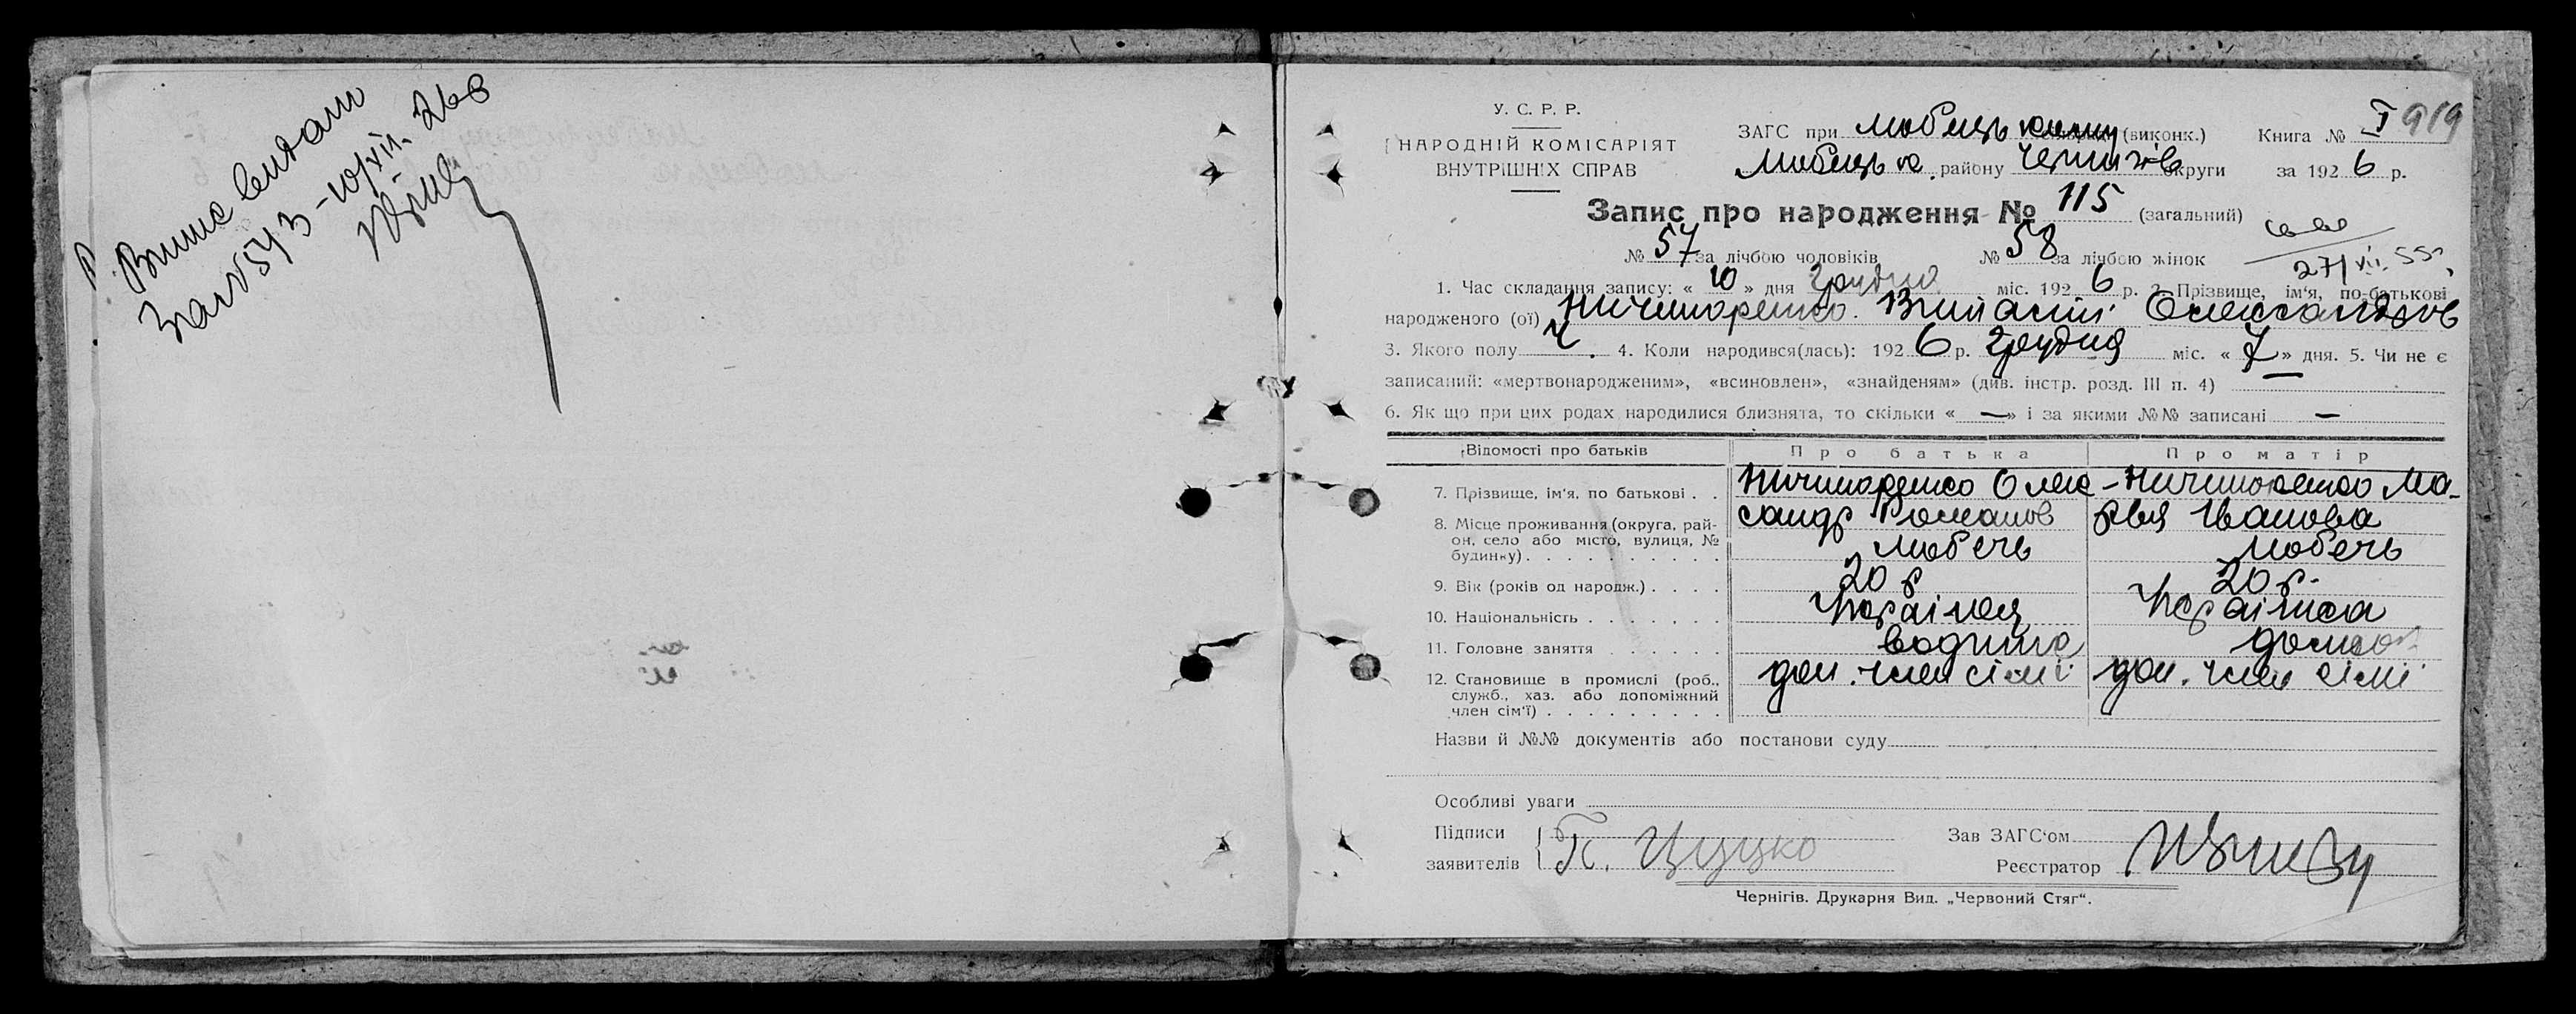 Випис видано
за № 543 - 10/XII. 26 в
У. С. Р. Р.
НАРОДНІЙ КОМІСАРІЯТ
ВНУТРІШНІХ СПРАВ
ЗАГС при Любецьком (виконк.)
Любецьк. району Черниг округи
Книга № I 919
за 1926 р.
Запис про народження № 115 (загальний)
№ 57 за лічбою чоловіків № 58 за лічбою жінок
27/VII. 55 г.
1. Час складання запису: « 10 » дня Грудня міс. 1926 р. 2. Прізвище, ім'я, по-батькові
народженого (ої) Ничипоренко Олександров
3. Якого полу ч. 4. Коли народився(лась): 1926 р. Грудня міс. « 7 » дня. 5. Чи не є
записаний: «мертвонародженим», «всиновлен», «знайденям» (див. інстр. розд. III п. 4) —
6. Як що при цих родах народилися близнята, то скільки « — » і за якими №№ записані —
Відомості про батьків Про батька Про матір
7. Прізвище, ім'я, по батькові . . Ничипоренко Олек- Ничипоренко Ма-
сандр Романов рья Іванова
8. Місце проживання (округа, рай-
он, село або місто, вулиця, №
будинку) . . . . . . . . . Любечь Любечь
9. Вік (років од народж.) . . . . 20 р 20 р.
10. Національність . . . . . . . Українец Українка
11. Головне заняття . . . . . .
12. Становище в промислі (роб.,
служб., хаз. або допоміжний
член сім'ї) . . . . . . . . . доп. член сімї доп. член сімї
Назви й №№ документів або постанови суду
Особливі уваги
Підписи
заявителів { П. Цуцко
Зав ЗАГС'ом
Реєстратор
Чернігів. Друкарня Вид. „Червоний Стяг".